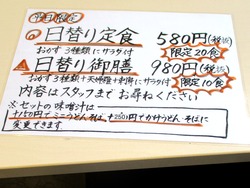 平日限定
日替り定食 580円(税抜)
おかず3種類にサラダ付 限定20食
日替り御膳 980円(税抜)
おかず3種類+天婦羅+刺身にサラダ付 限定10食
内容はスタッフまでお尋ねください
※セットの味噌汁は
+150円でミニうどん・そば、+250円でかけうどん・そばに
変更できます。